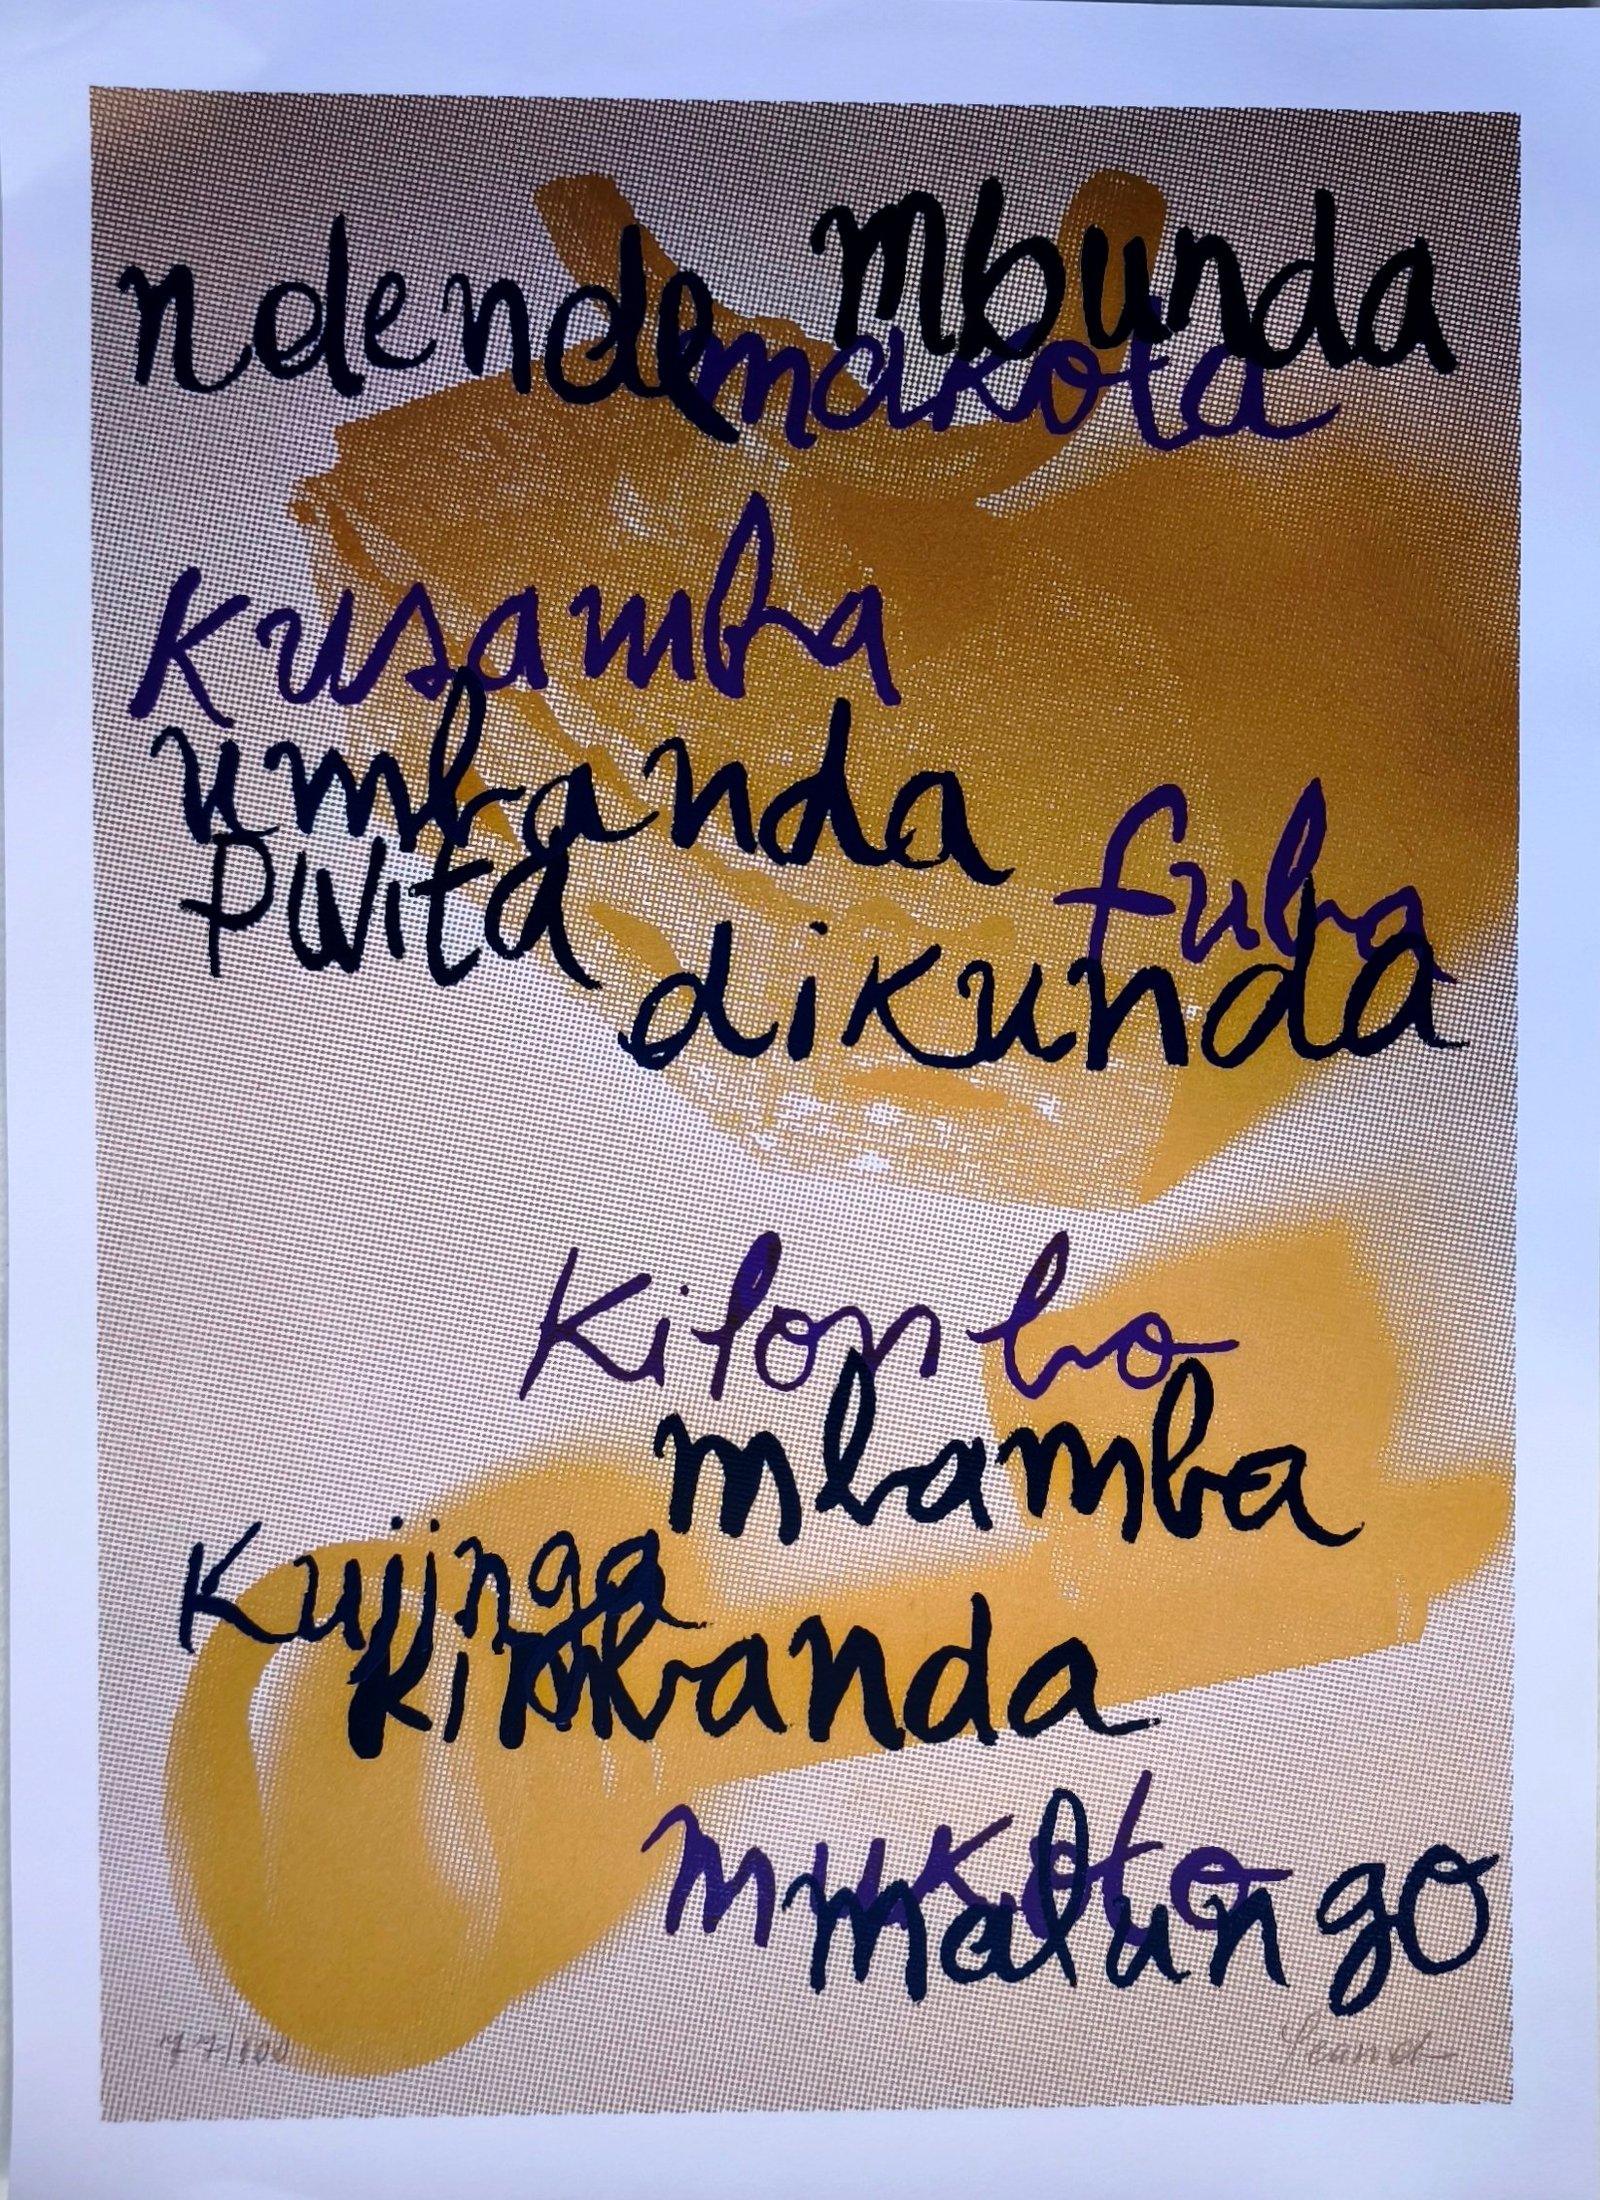 ndende mbunda
makota
kusamba
umbanda
fuba
pwita
dikunda
kilombo
mbamba
kujinga
kimbanda
mukoto
malungo
77/100